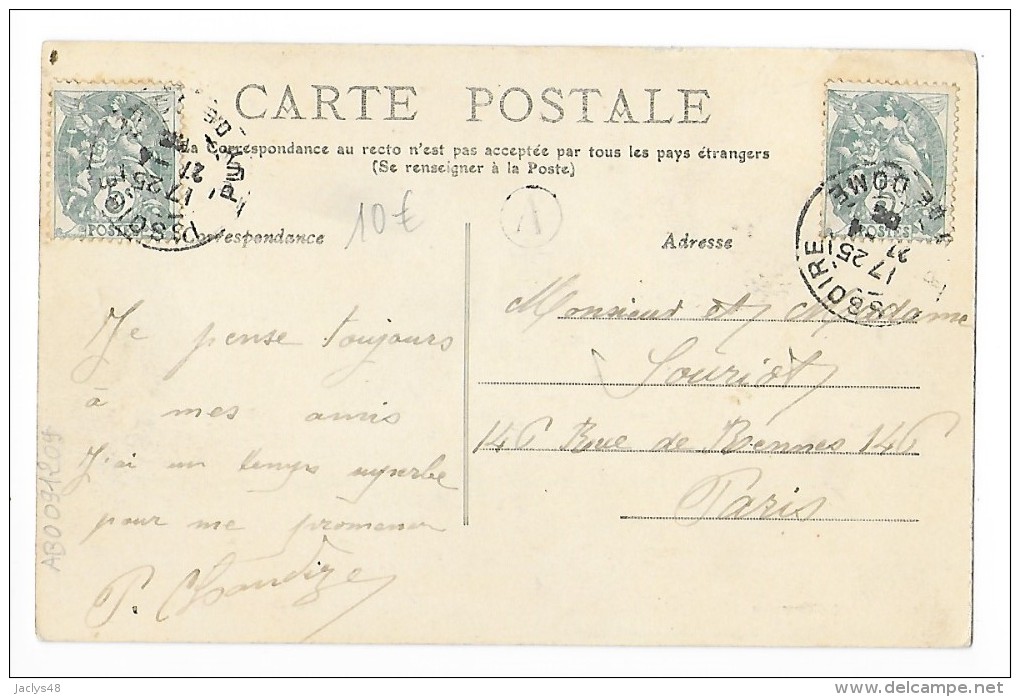 CARTE POSTALE
La Correspondance au recto n'est pas acceptée par tous les pays étrangers
(Se renseigner à la Poste)
Correspondance
10€
A
Adresse
POSTES
POSTES
ISSOIRE
17 25
21
PUY-DE-DOME
ISSOIRE
17 25
21
DE DOME
Je pense toujours
à mes amis
J'ai un temps superbe
pour me promener
P.
Monsieur et Madame
Souriot
146 Rue de Rennes 146
Paris
AB0091209
jaclys48
www.delcampe.net